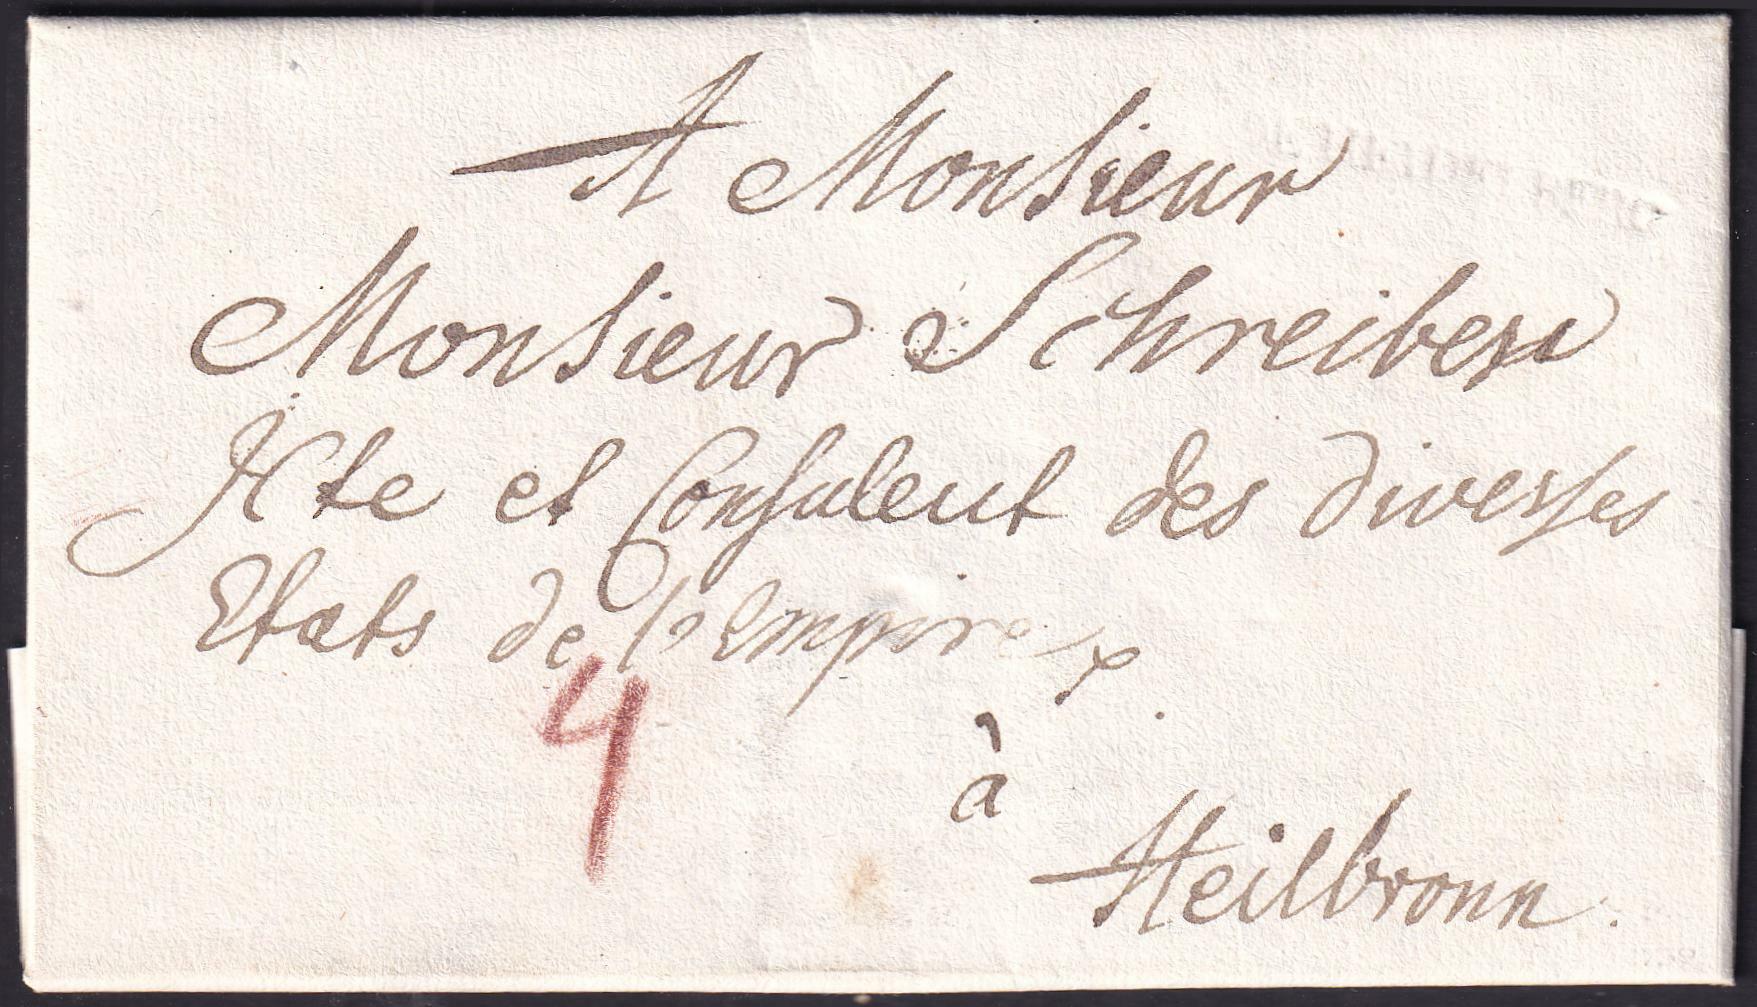 A Monsieur
Monsieur Schreiber
JCte et Consulent des diverses
Etats de l'Empire
4
à
Heilbronn.